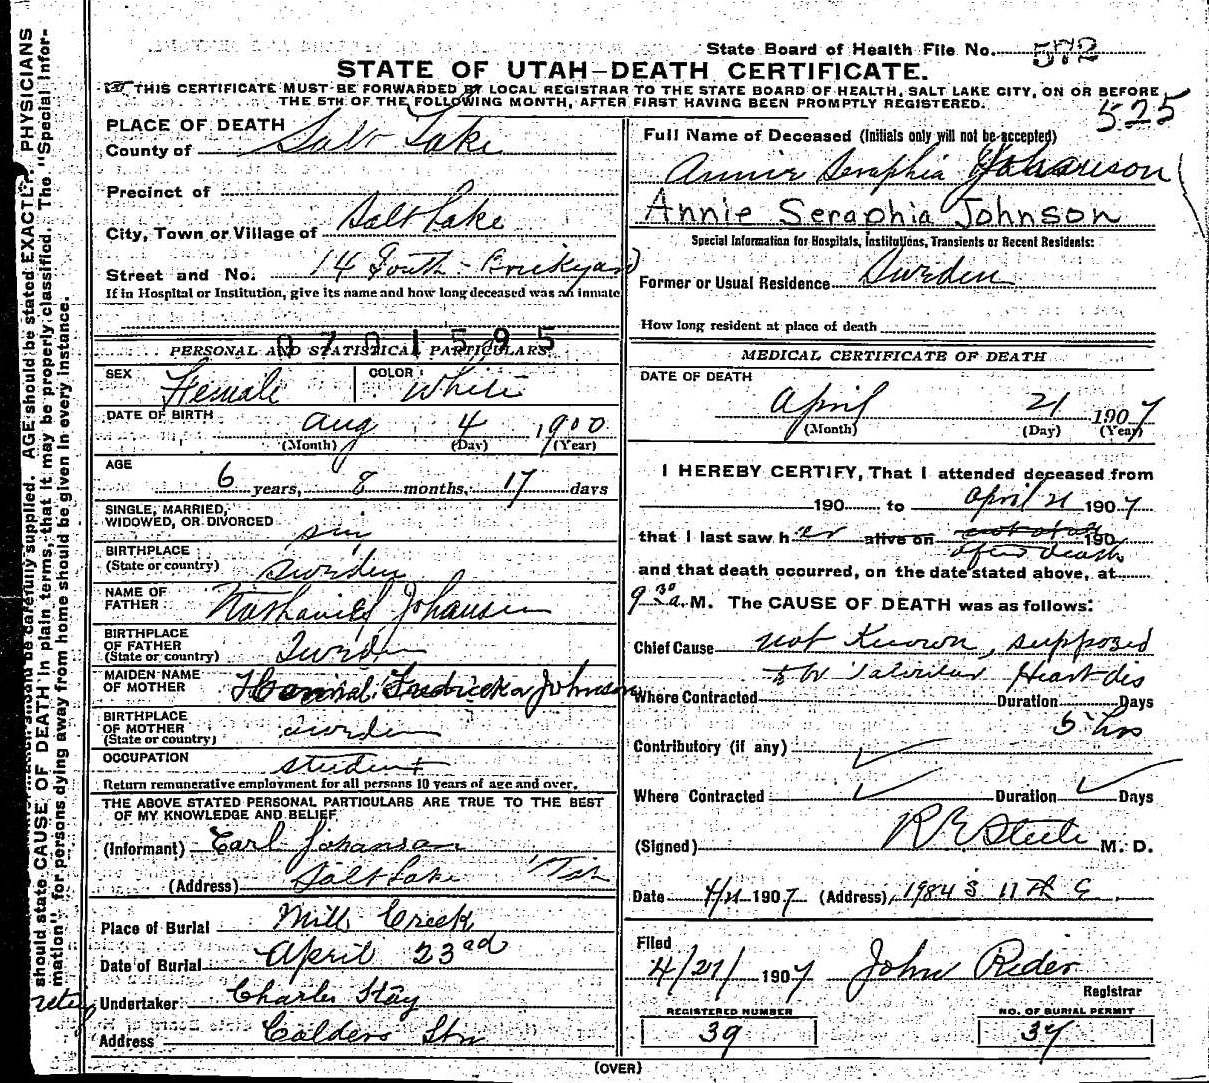 State Board of Health File No. 572
STATE OF UTAH—DEATH CERTIFICATE.
THIS CERTIFICATE MUST BE FORWARDED BY LOCAL REGISTRAR TO THE STATE BOARD OF HEALTH, SALT LAKE CITY, ON OR BEFORE
THE 5TH OF THE FOLLOWING MONTH, AFTER FIRST HAVING BEEN PROMPTLY REGISTERED.
525
PLACE OF DEATH
County of Salt Lake
Precinct of
City, Town or Village of Salt Lake
Street and No. 14 South - Brickyard
If in Hospital or Institution, give its name and how long deceased was an inmate
0701595
PERSONAL AND STATISTICAL PARTICULARS.
SEX Female COLOR: White
DATE OF BIRTH
Aug 4, 1900
(Month) (Day) (Year)
AGE
6 years, 8 months, 17 days
SINGLE, MARRIED,
WIDOWED, OR DIVORCED sin
BIRTHPLACE
(State or country) Sweden
NAME OF
FATHER Nathaniel Johansen
BIRTHPLACE
OF FATHER
(State or country) Sweden
MAIDEN NAME
OF MOTHER Fredricka Johnson
BIRTHPLACE
OF MOTHER
(State or country) Sweden
OCCUPATION student
Return remunerative employment for all persons 10 years of age and over.
THE ABOVE STATED PERSONAL PARTICULARS ARE TRUE TO THE BEST
OF MY KNOWLEDGE AND BELIEF
(Informant) Carl Johanson
(Address) Salt Lake
Place of Burial Mill Creek
Date of Burial April 23rd
Undertaker Charles Stay
Address Calders Stn
Full Name of Deceased (Initials only will not be accepted)
Annie Seraphia Johanson
Annie Seraphia Johnson
Special Information for Hospitals, Institutions, Transients or Recent Residents:
Former or Usual Residence Sweden
How long resident at place of death
MEDICAL CERTIFICATE OF DEATH
DATE OF DEATH
April 21 1907
(Month) (Day) (Year)
I HEREBY CERTIFY, That I attended deceased from
190 to April 21 1907
that I last saw her alive on 190
after death
and that death occurred, on the date stated above, at
9 30 a. M. The CAUSE OF DEATH was as follows:
Chief Cause not Known, supposed
to be Valvular Heart dis
Where Contracted Duration Days
5 hrs
Contributory (if any) ✓
Where Contracted ✓ Duration ✓ Days
(Signed) R E Steele M. D.
Date 4/21 1907 (Address) 1984 S 11th E
Filed
4/27/ 1907 John Rider
Registrar
REGISTERED NUMBER NO. OF BURIAL PERMIT
39 37
(OVER)
should state CAUSE OF DEATH in plain terms, that it may be properly classified. The "Special Infor-
mation" for persons dying away from home should be given in every instance.